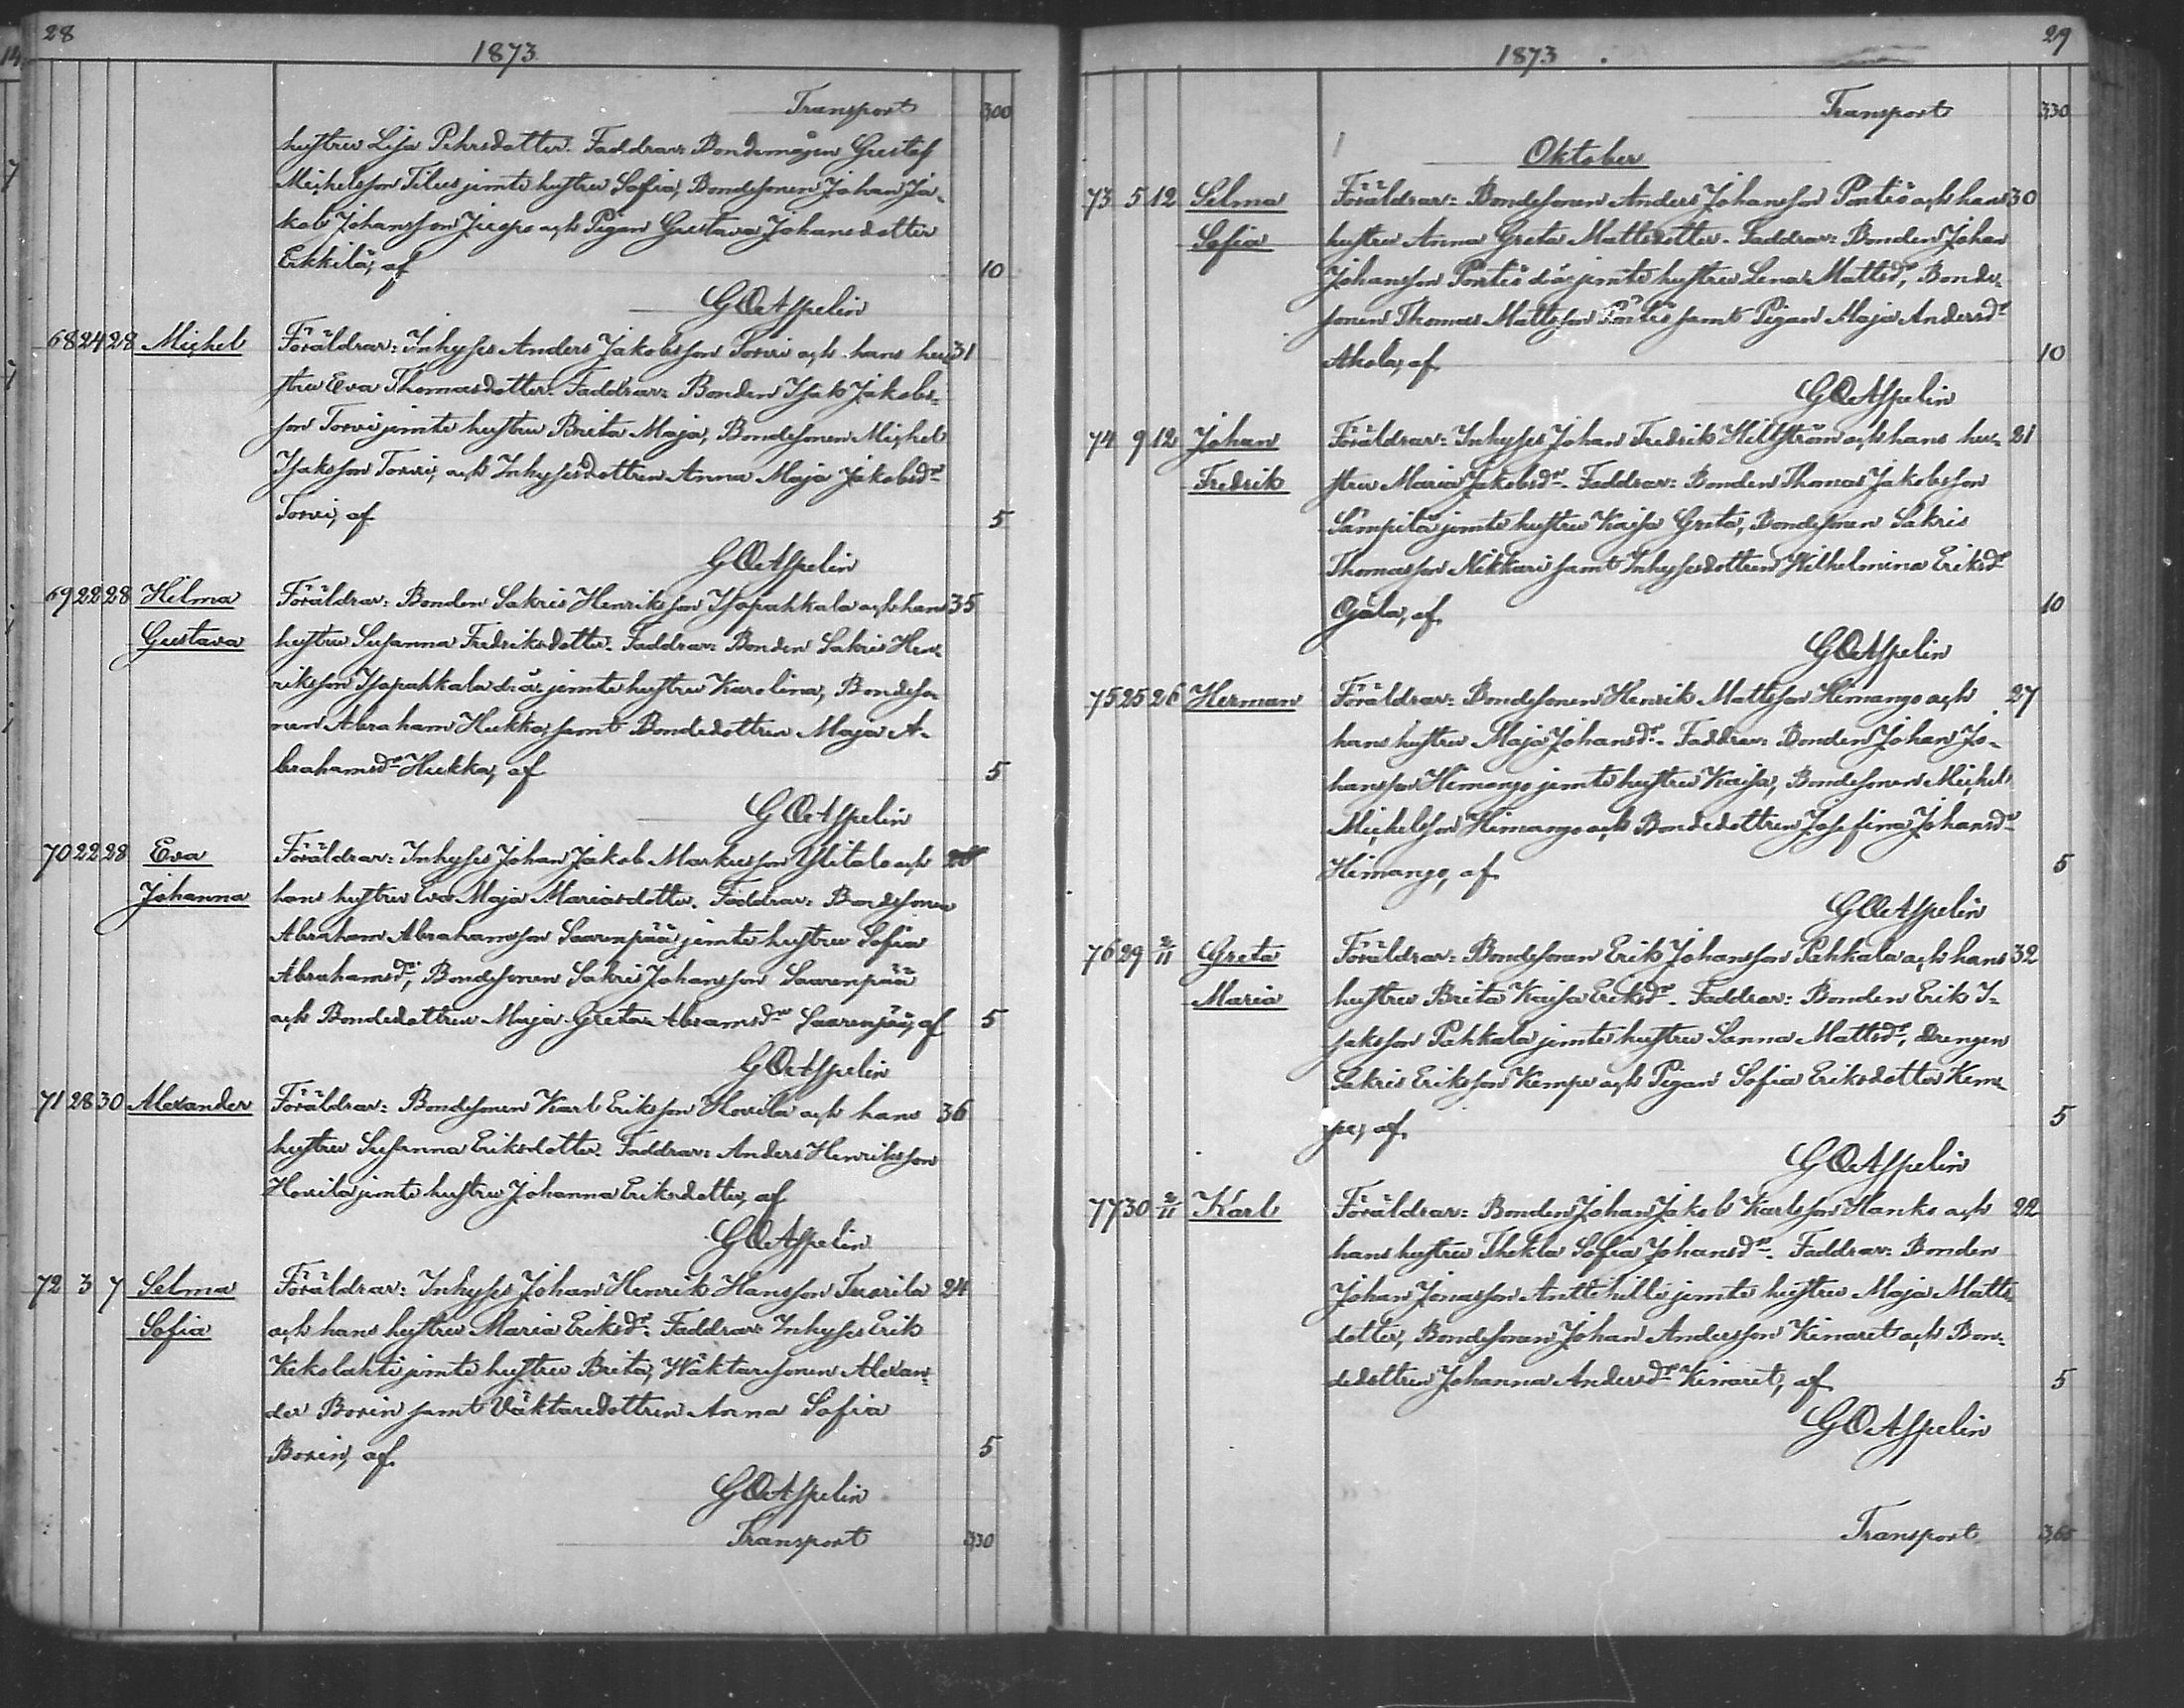 28
1873
Transport 300
hustru Lisa Pehrsdotter. Faddrar: Bondemågen Gustaf
Michelsson Tilus jemte hustru Sofia, Bondesonen Johan Ja-
kob Johansson Juopo och Pigan Gustava Johansdotter
Erkkilä, af 10
G O Aspelin
68 24 28 Michel Föräldrar: Inhyses Anders Jakobsson Torvi och hans hu- 31
stru Eva Thomasdotter. Faddrar: Bonden Isak Jakobs-
son Torvi jemte hustru Brita Maja, Bondesonen Michel
Isaksson Torvi, och Inhysesdottren Anna Maja Jakobsdr
Torvi, af 5
G O Aspelin
69 22 28 Hilma Föräldrar: Bonden Sakris Henriksson Isopahkala och hans 35
Gustava hustru Susanna Fredriksdotter. Faddrar: Bonden Sakris Hen-
riksson Isopahkala d.ä. jemte hustru Karolina, Bondeso-
nen Abraham Hukka, samt Bondedottren Maja A-
brahamsdr Hukka, af 5
G O Aspelin
70 22 28 Eva Föräldrar: Inhyses Johan Jakob Markusson Ylitalo och
Johanna hans hustru Eva Maja Mariasdotter. Faddrar: Bondesonen
Abraham Abrahamsson Saarenpää jemte hustru Sofia
Abrahamsdr, Bondesonen Sakris Johansson Saarenpää
och Bondedottren Maja Greta Abramsdr Saarenpää, af 5
G O Aspelin
71 28 30 Alexander Föräldrar: Bondesonen Karl Eriksson Hovila och hans 36
hustru Susanna Eriksdotter. Faddrar: Anders Henriksson
Hovila jemte hustru Johanna Eriksdotter, af
G O Aspelin
72 3 7 Selma Föräldrar: Inhyses Johan Henrik Hansson Tuorila 24
Sofia och hans hustru Maria Eriksdr. Faddrar: Inhyses Erik
Kekolahti jemte hustru Brita, Wäktaresonen Alexan-
der Borin samt Väktaredottren Anna Sofia
Borin, af. 5
G O Aspelin
Transport 3,30
29
1873
Transport 330
Oktober
73 5 12 Selma Föräldrar: Bondesonen Anders Johansson Pöntiö och hans 30
Sofia hustru Anna Greta Mattsdotter. Faddrar: Bonden Johan
Johansson Pöntiö d.ä. jemte hustru Lena Mattsdr, Bonde-
sonen Thomas Mattsson Pöntiö samt Pigan Maja Andersdr
Ahola, af 10
G O Aspelin
74 9 12 Johan Föräldrar: Inhyses Johan Fredrik Hellström och hans hu- 21
Fredrik stru Maria Jakobsdr. Faddrar: Bonden Thomas Jakobsson
Sämpilä jemte hustru Kajsa Greta, Bondesonen Sakris
Thomasson Nikkari samt Inhysesdottren Wilhelmina Eriksdr
Ojala, af. 10
G O Aspelin
75 25 26 Herman Föräldrar: Bondesonen Henrik Mattsson Himango och 27
hans hustru Maja Johansdr. Faddrar: Bonden Johan Jo-
hansson Himango jemte hustru Kaisa, Bondesonen Michel
Michelsson Himango och Bondedottren Josefina Johansdr
Himango, af. 5
G O Aspelin
76 29 2/11 Greta Föräldrar: Bondesonen Erik Johansson Pahkala och hans 32
Maria hustru Brita Kaisa Eriksdr. Faddrar: Bonden Erik I-
saksson Pahkala jemte hustru Sanna Mattsdr, drengen
Sakris Eriksson Kempe och Pigan Sofia Eriksdotter Kem-
pe, af. 5
G O Aspelin
77 30 2/11 Karl Föräldrar: Bonden Johan Jakob Karlsson Hanko och 22
hans hustru Thekla Sofia Johansdr. Faddrar: Bonden
Johan Jonasson Anttihilli jemte hustru Maja Matts-
dotter, Bondesonen Johan Andersson Kinaret och Bon-
dedottren Johanna Andersdr Kinaret, af 5
G O Aspelin
Transport 3,65